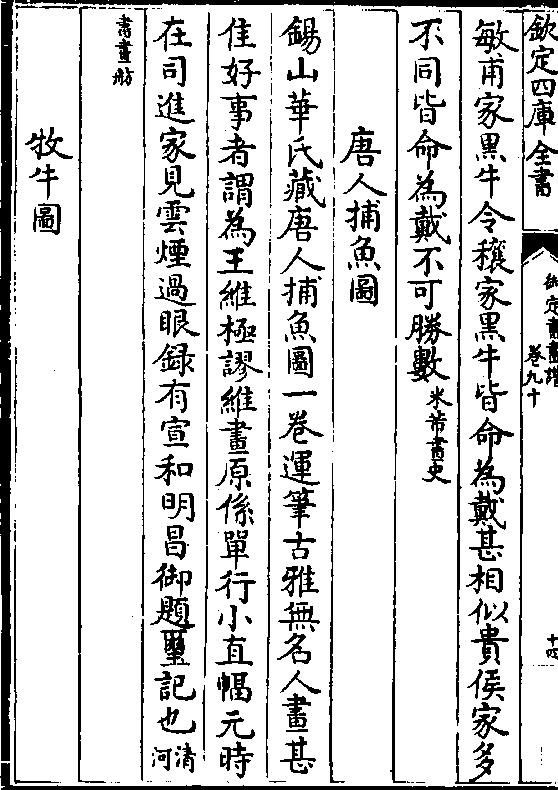 欽定四庫全書
御定書畫譜
卷九十
十四
敏甫家黑牛令穰家黑牛皆命為戴甚相似貴侯家多
不同皆命為戴不可勝數米芾畫史
唐人捕魚圖
錫山華氏藏唐人捕魚圖一卷運筆古雅無名人畫甚
佳好事者謂為王維極謬維畫原係單行小直幅元時
在司進家見雲煙過眼録有宣和明昌御題璽記也清河
書畫舫
牧牛圖